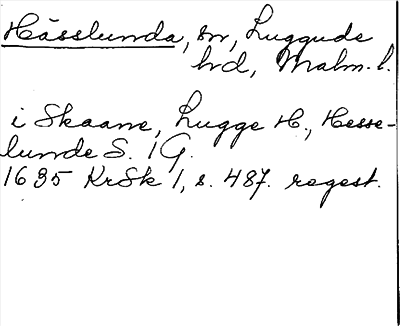 Hässlunda, sn, Luggude
hrd, Malm. l.
i Skaane, Lugge H., Hesse-
lunde S. 1 G.
1635 KrSk 1, s. 487. regest.